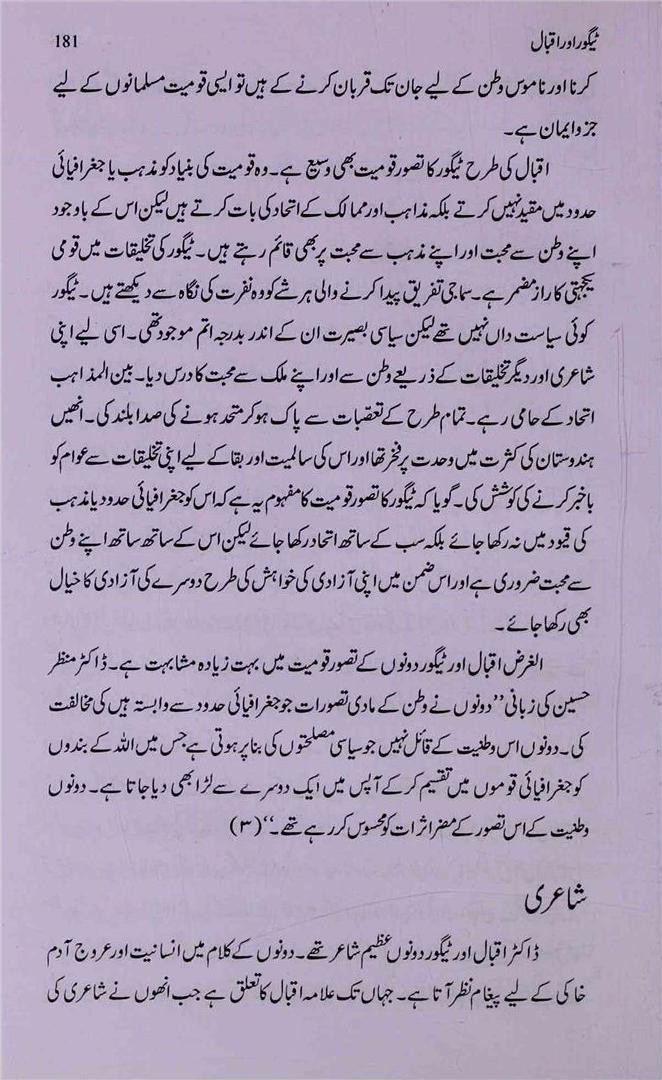 ٹیگور اور اقبال 181
کرنا اور ناموس وطن کے لیے جان تک قربان کرنے کے ہیں تو ایسی قومیت مسلمانوں کے لیے
جزو ایمان ہے۔
اقبال کی طرح ٹیگور کا تصور قومیت بھی وسیع ہے۔ وہ قومیت کی بنیاد کو مذہب یا جغرافیائی
حدود میں مقید نہیں کرتے بلکہ مذاہب اور ممالک کے اتحاد کی بات کرتے ہیں لیکن اس کے باوجود
اپنے وطن سے محبت اور اپنے مذہب سے محبت پر بھی قائم رہتے ہیں۔ ٹیگور کی تخلیقات میں قومی
یکجہتی کا راز مضمر ہے۔ سماجی تفریق پیدا کرنے والی ہر شے کو وہ نفرت کی نگاہ سے دیکھتے ہیں۔ ٹیگور
کوئی سیاست داں نہیں تھے لیکن سیاسی بصیرت ان کے اندر بدرجہ اتم موجود تھی۔ اسی لیے اپنی
شاعری اور دیگر تخلیقات کے ذریعے وطن سے اور اپنے ملک سے محبت کا درس دیا۔ بین المذاہب
اتحاد کے حامی رہے۔ تمام طرح کے تعصّبات سے پاک ہو کر متحد ہونے کی صدا بلند کی۔ انھیں
ہندوستان کی کثرت میں وحدت پر فخر تھا اور اس کی سالمیت اور بقا کے لیے اپنی تخلیقات سے عوام کو
باخبر کرنے کی کوشش کی۔ گویا کہ ٹیگور کا تصور قومیت کا مفہوم یہ ہے کہ اس کو جغرافیائی حدود یا مذہب
کی قیود میں نہ رکھا جائے بلکہ سب کے ساتھ اتحاد رکھا جائے لیکن اس کے ساتھ ساتھ اپنے وطن
سے محبت ضروری ہے اور اس ضمن میں اپنی آزادی کی خواہش کی طرح دوسرے کی آزادی کا خیال
بھی رکھا جائے۔
الغرض اقبال اور ٹیگور دونوں کے تصور قومیت میں بہت زیادہ مشابہت ہے۔ ڈاکٹر منظر
حسین کی زبانی ”دونوں نے وطن کے مادی تصورات جو جغرافیائی حدود سے وابستہ ہیں کی مخالفت
کی۔ دونوں اس وطنیت کے قائل نہیں جو سیاسی مصلحتوں کی بنا پر ہوتی ہے جس میں اللہ کے بندوں
کو جغرافیائی قوموں میں تقسیم کر کے آپس میں ایک دوسرے سے لڑا بھی دیا جاتا ہے۔ دونوں
وطنیت کے اس تصور کے مضر اثرات کو محسوس کر رہے تھے۔“ (۳)
شاعری
ڈاکٹر اقبال اور ٹیگور دونوں عظیم شاعر تھے۔ دونوں کے کلام میں انسانیت اور عروج آدم
خاکی کے لیے پیغام نظر آتا ہے۔ جہاں تک علامہ اقبال کا تعلق ہے جب انھوں نے شاعری کی